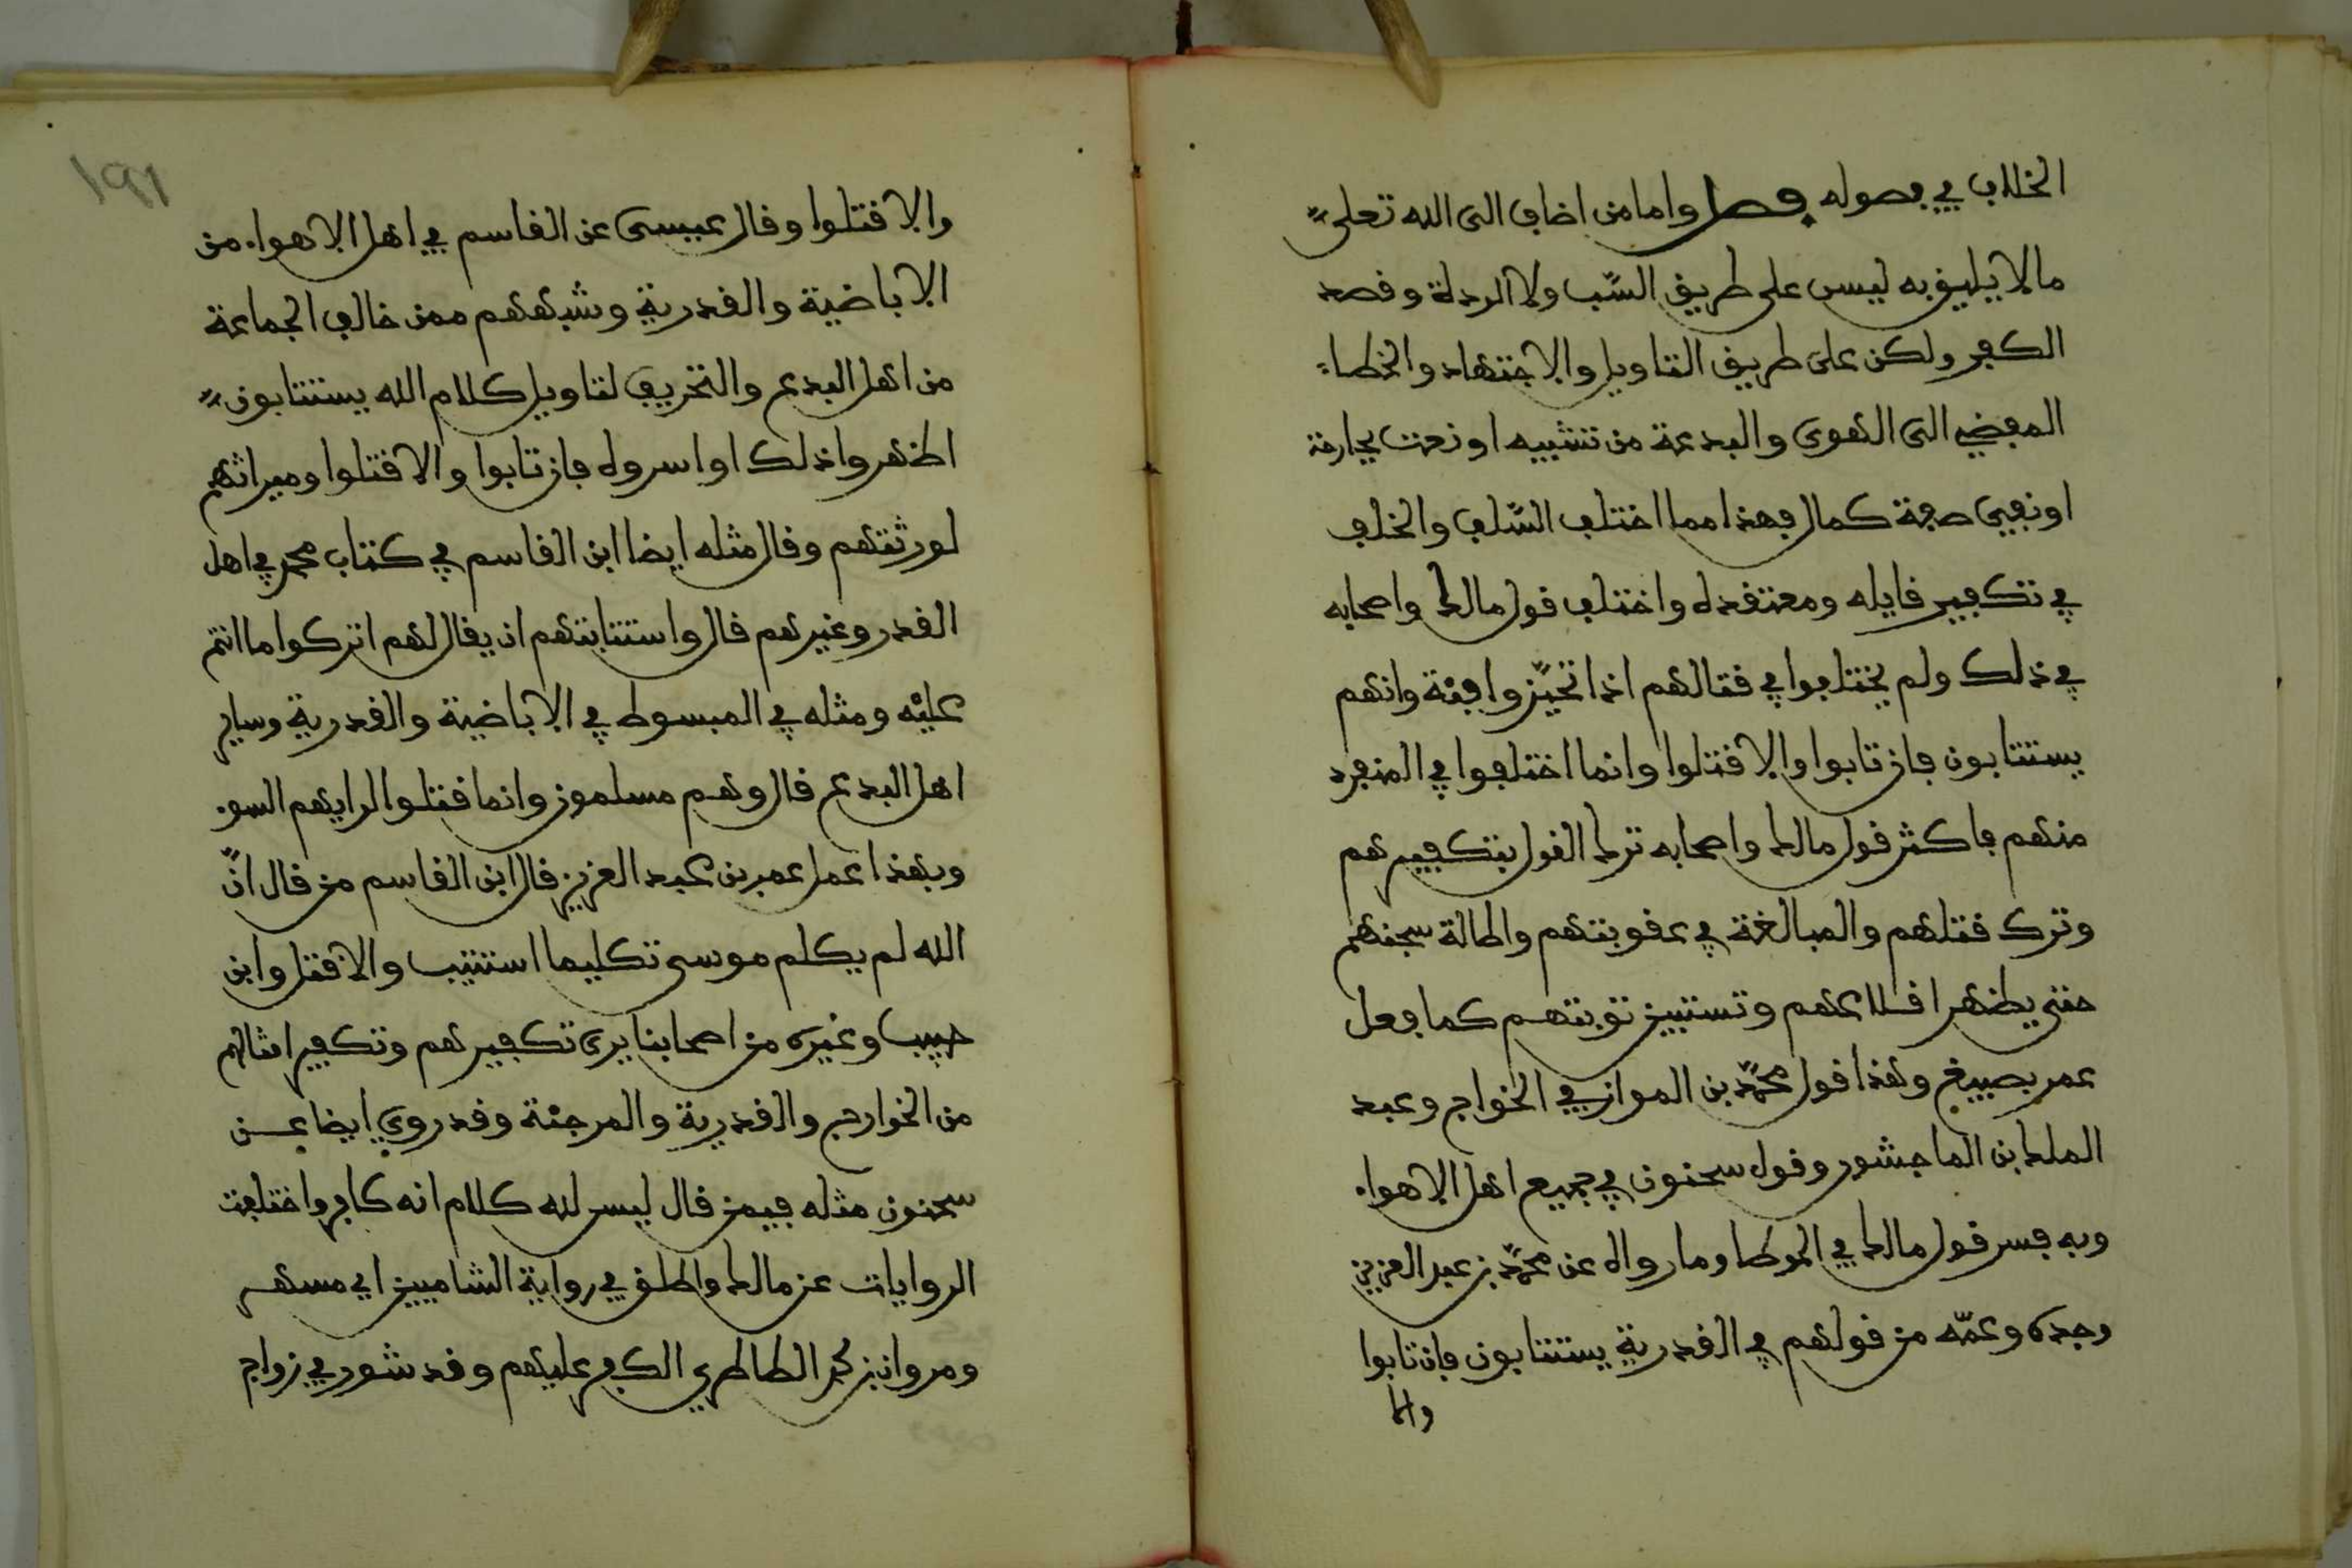 الخلاف في فصوله فصل واما من اضاف الى الله تعلى
ما لا يليق به ليس على طريق السّب ولا الردة وقصد
الكفر ولكن على طريق التاويل والاجتهاد والخطاء
المفضي الى الهوى والبدعة من تشبيه او نعت بجارحة
او نفي صفة كمال فهذا مما اختلف السّلف والخلف
في تكفير قايله ومعتقده واختلف قول مالك واصحابه
في ذلك ولم يختلفوا في قتالهم اذا تحيّزوا فئة وانهم
يستتابون فان تابوا والا قتلوا وانما اختلفوا في المنفرد
منهم فاكثر قول مالك واصحابه ترك القول بتكفيرهم
وترك قتلهم والمبالغة في عقوبتهم واطالة سجنهم
حتى يظهر اقلاعهم وتستبين توبتهم كما فعل
عمر بصبيغ وهذا قول محمّد بن المواز في الخوارج وعبد
الملك بن الماجشور وقول سحنون في جميع اهل الاهواء
وبه فسر قول مالك في الموطا وما رواه عن محمّد بن عبد العزيز
وجده وعمّه من قولهم في القدرية يستتابون فان تابوا
والا
١٩١
والا قتلوا وقال عيسى عن القاسم في اهل الاهواء من
الاباضية والقدرية وشبههم ممن خالف الجماعة
من اهل البدع والتحريف لتاويل كلام الله يستتابون
اظهروا ذلك او اسروه فان تابوا والا قتلوا وميراثهم
لورثتهم وقال مثله ايضا ابن القاسم في كتاب محمد في اهل
القدر وغيرهم قال واستتابتهم ان يقال لهم اتركوا ما انتم
عليه ومثله في المبسوط في الاباضية والقدرية وساير
اهل البدع قال وهم مسلمون وانما قتلوا لرايهم السوء
وبهذا عمل عمر بن عبد العزيز قال ابن القاسم من قال انّ
الله لم يكلم موسى تكليما استتيب والا قتل وابن
حبيب وغيره من اصحابنا يرى تكفيرهم وتكفير امثالهم
من الخوارج والقدرية والمرجئة وقد روي ايضا عن
سحنون مثله فيمن قال ليس لله كلام انه كافر واختلفت
الروايات عن مالك واطلق في رواية الشاميين ابي مسهر
ومروان بن محمد الطاطري الكفر عليهم وقد شور في زواج